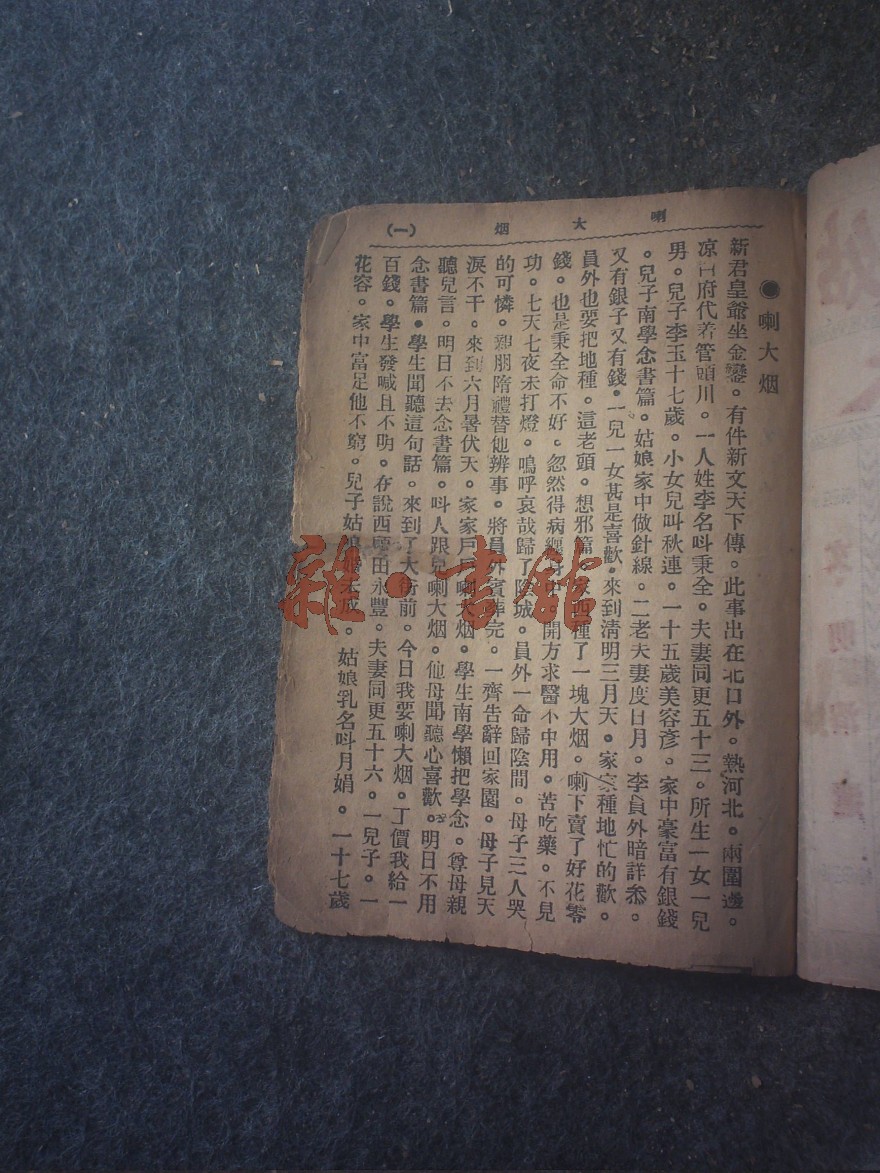 喇大烟 (一)
●喇大烟
新君皇爺坐金鑾。有件新文天下傳。此事出在北口外。熱河北。兩圍邊。
凉府代着管頭川。一人姓李名呌秉全。夫妻同更五十三。所生一女一兒
男。兒子李玉十七歲。小女兒叫秋連。一十五歲美容彥。家中豪富有銀錢
。兒子南學念書篇。姑娘家中做針線。二老夫妻度日月。李員外暗詳叅。
又有銀子又有錢。一兒一女甚是喜歡。來到清明三月天。家家種地忙的歡。
員外也要把地種。這老頭。想邪篇。家西種了一塊大烟。喇下賣了好花零
錢。也是秉全命不好。忽然得病纏身中。開方求醫不中用。苦吃藥。不見
功。七天七夜未打燈。嗚呼哀哉歸了陰城。員外一命歸陰間。母子三人哭
的可憐。親朋隋禮替他辨事。將員外賓葬完。一齊告辭回家園。母子見天
淚不干。來到六月暑伏天。家家戶戶喇大烟。學生南學懶把學念。尊母親
聽兒言。明日不去念書篇。呌人跟兒喇大烟。他母聞聽心喜歡。明日不用
念書篇。學生聞聽這句話。來到了大街前。今日我要喇大烟。丁價我給一
百錢。學生發喊且不明。在說西頭田永豐。夫妻同更五十六。一兒子。一
花容。家中富足他不窮。兒子姑娘婚未成。姑娘乳名呌月娟。一十七歲
雜·書館